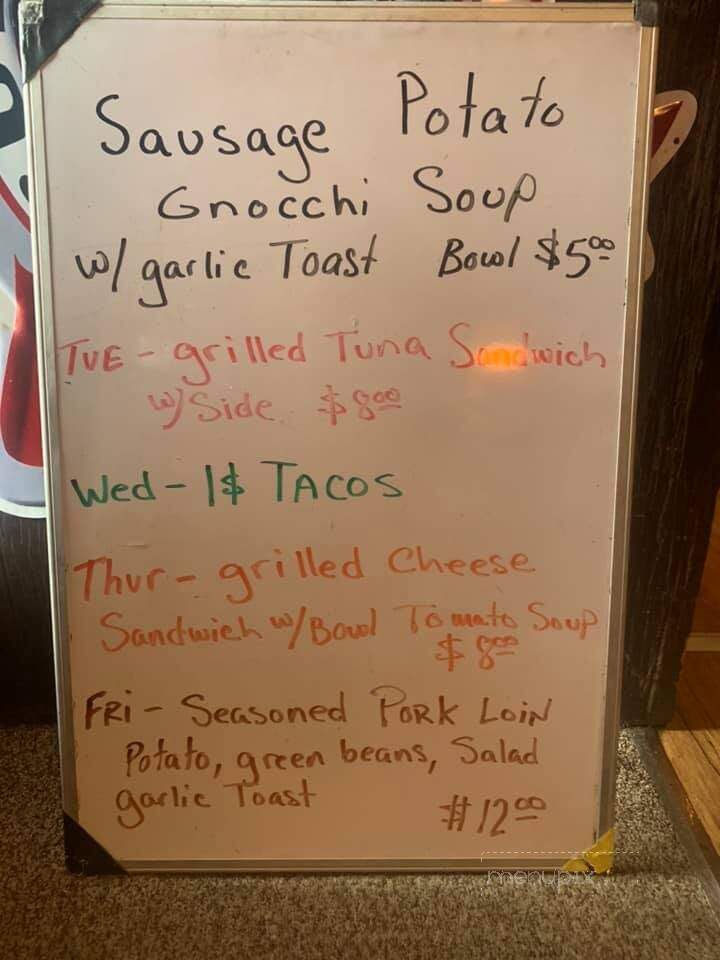 Sausage Potato
Gnocchi Soup
w/ garlic Toast Bowl $5.00
TUE - grilled Tuna Sandwich
w/ Side $8.00
Wed - 1$ TACOS
Thur - grilled Cheese
Sandwich w/ Bowl Tomato Soup
$8.00
FRi - Seasoned PORK LOiN
Potato, green beans, Salad
garlic Toast #12.00
menupix